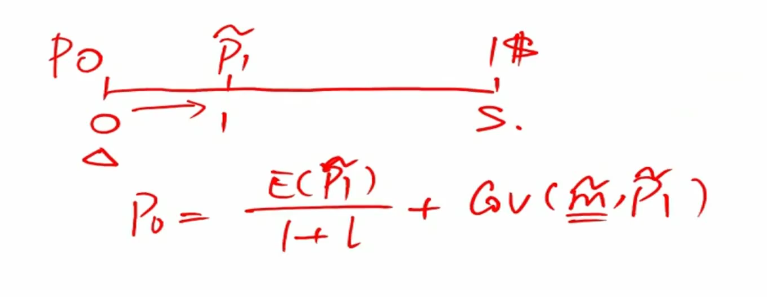 P0 p̃₁ 1$
0 → 1 s.
Δ
P₀ = E(p̃₁) / (1 + l) + Cov(m̃, p̃₁)